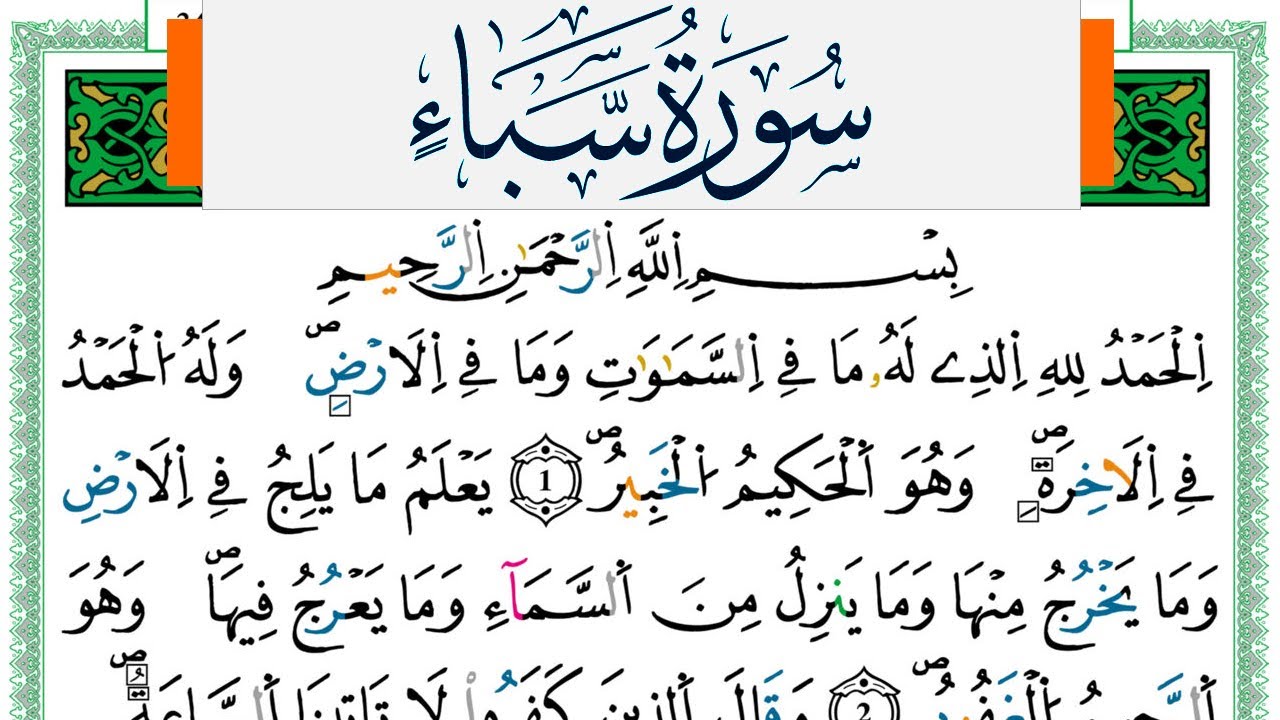 سُورَةُ سَبَإٍ
بِسْمِ اِ۬للَّهِ اِ۬لرَّحْمَٰنِ اِ۬لرَّحِيمِ
اِ۬لْحَمْدُ لِلهِ اِ۬لذِے لَهُۥ مَا فِے اِ۬لسَّمَٰوَٰتِ وَمَا فِے اِ۬لَارْضِۖ وَلَهُ اُ۬لْحَمْدُ
فِے اِ۬لَاخِرَةِۖ وَهُوَ اَ۬لْحَكِيمُ اُ۬لْخَبِيرُۖ 1 يَعْلَمُ مَا يَلِجُ فِے اِ۬لَارْضِ
وَمَا يَخْرُجُ مِنْهَا وَمَا يَنزِلُ مِنَ اَ۬لسَّمَآءِ وَمَا يَعْرُجُ فِيهَاۖ وَهُوَ
اَ۬لرَّحِيمُ اُ۬لْغَفُورُۖ 2 وَقَالَ اَ۬لذِينَ كَفَرُواْ لَا تَاتِينَا اَ۬لسَّاعَةُۖ